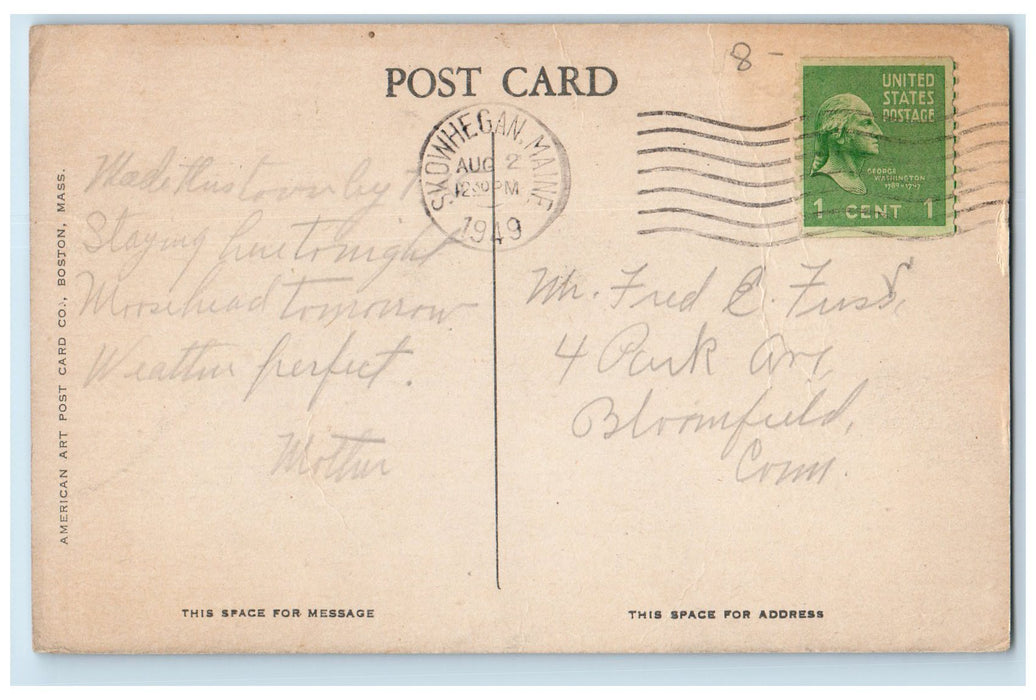 8-
POST CARD
UNITED
STATES
POSTAGE
GEORGE
WASHINGTON
1789-1797
1 CENT 1
SKOWHEGAN, MAINE
AUG 2
12 30 PM
1949
Made this town by
Staying here tonight
Moosehead tomorrow
Weather perfect.
Mother
Mr. Fred E. Fuss,
4 Park Ave,
Bloomfield,
Conn.
AMERICAN ART POST CARD CO., BOSTON, MASS.
THIS SPACE FOR MESSAGE
THIS SPACE FOR ADDRESS